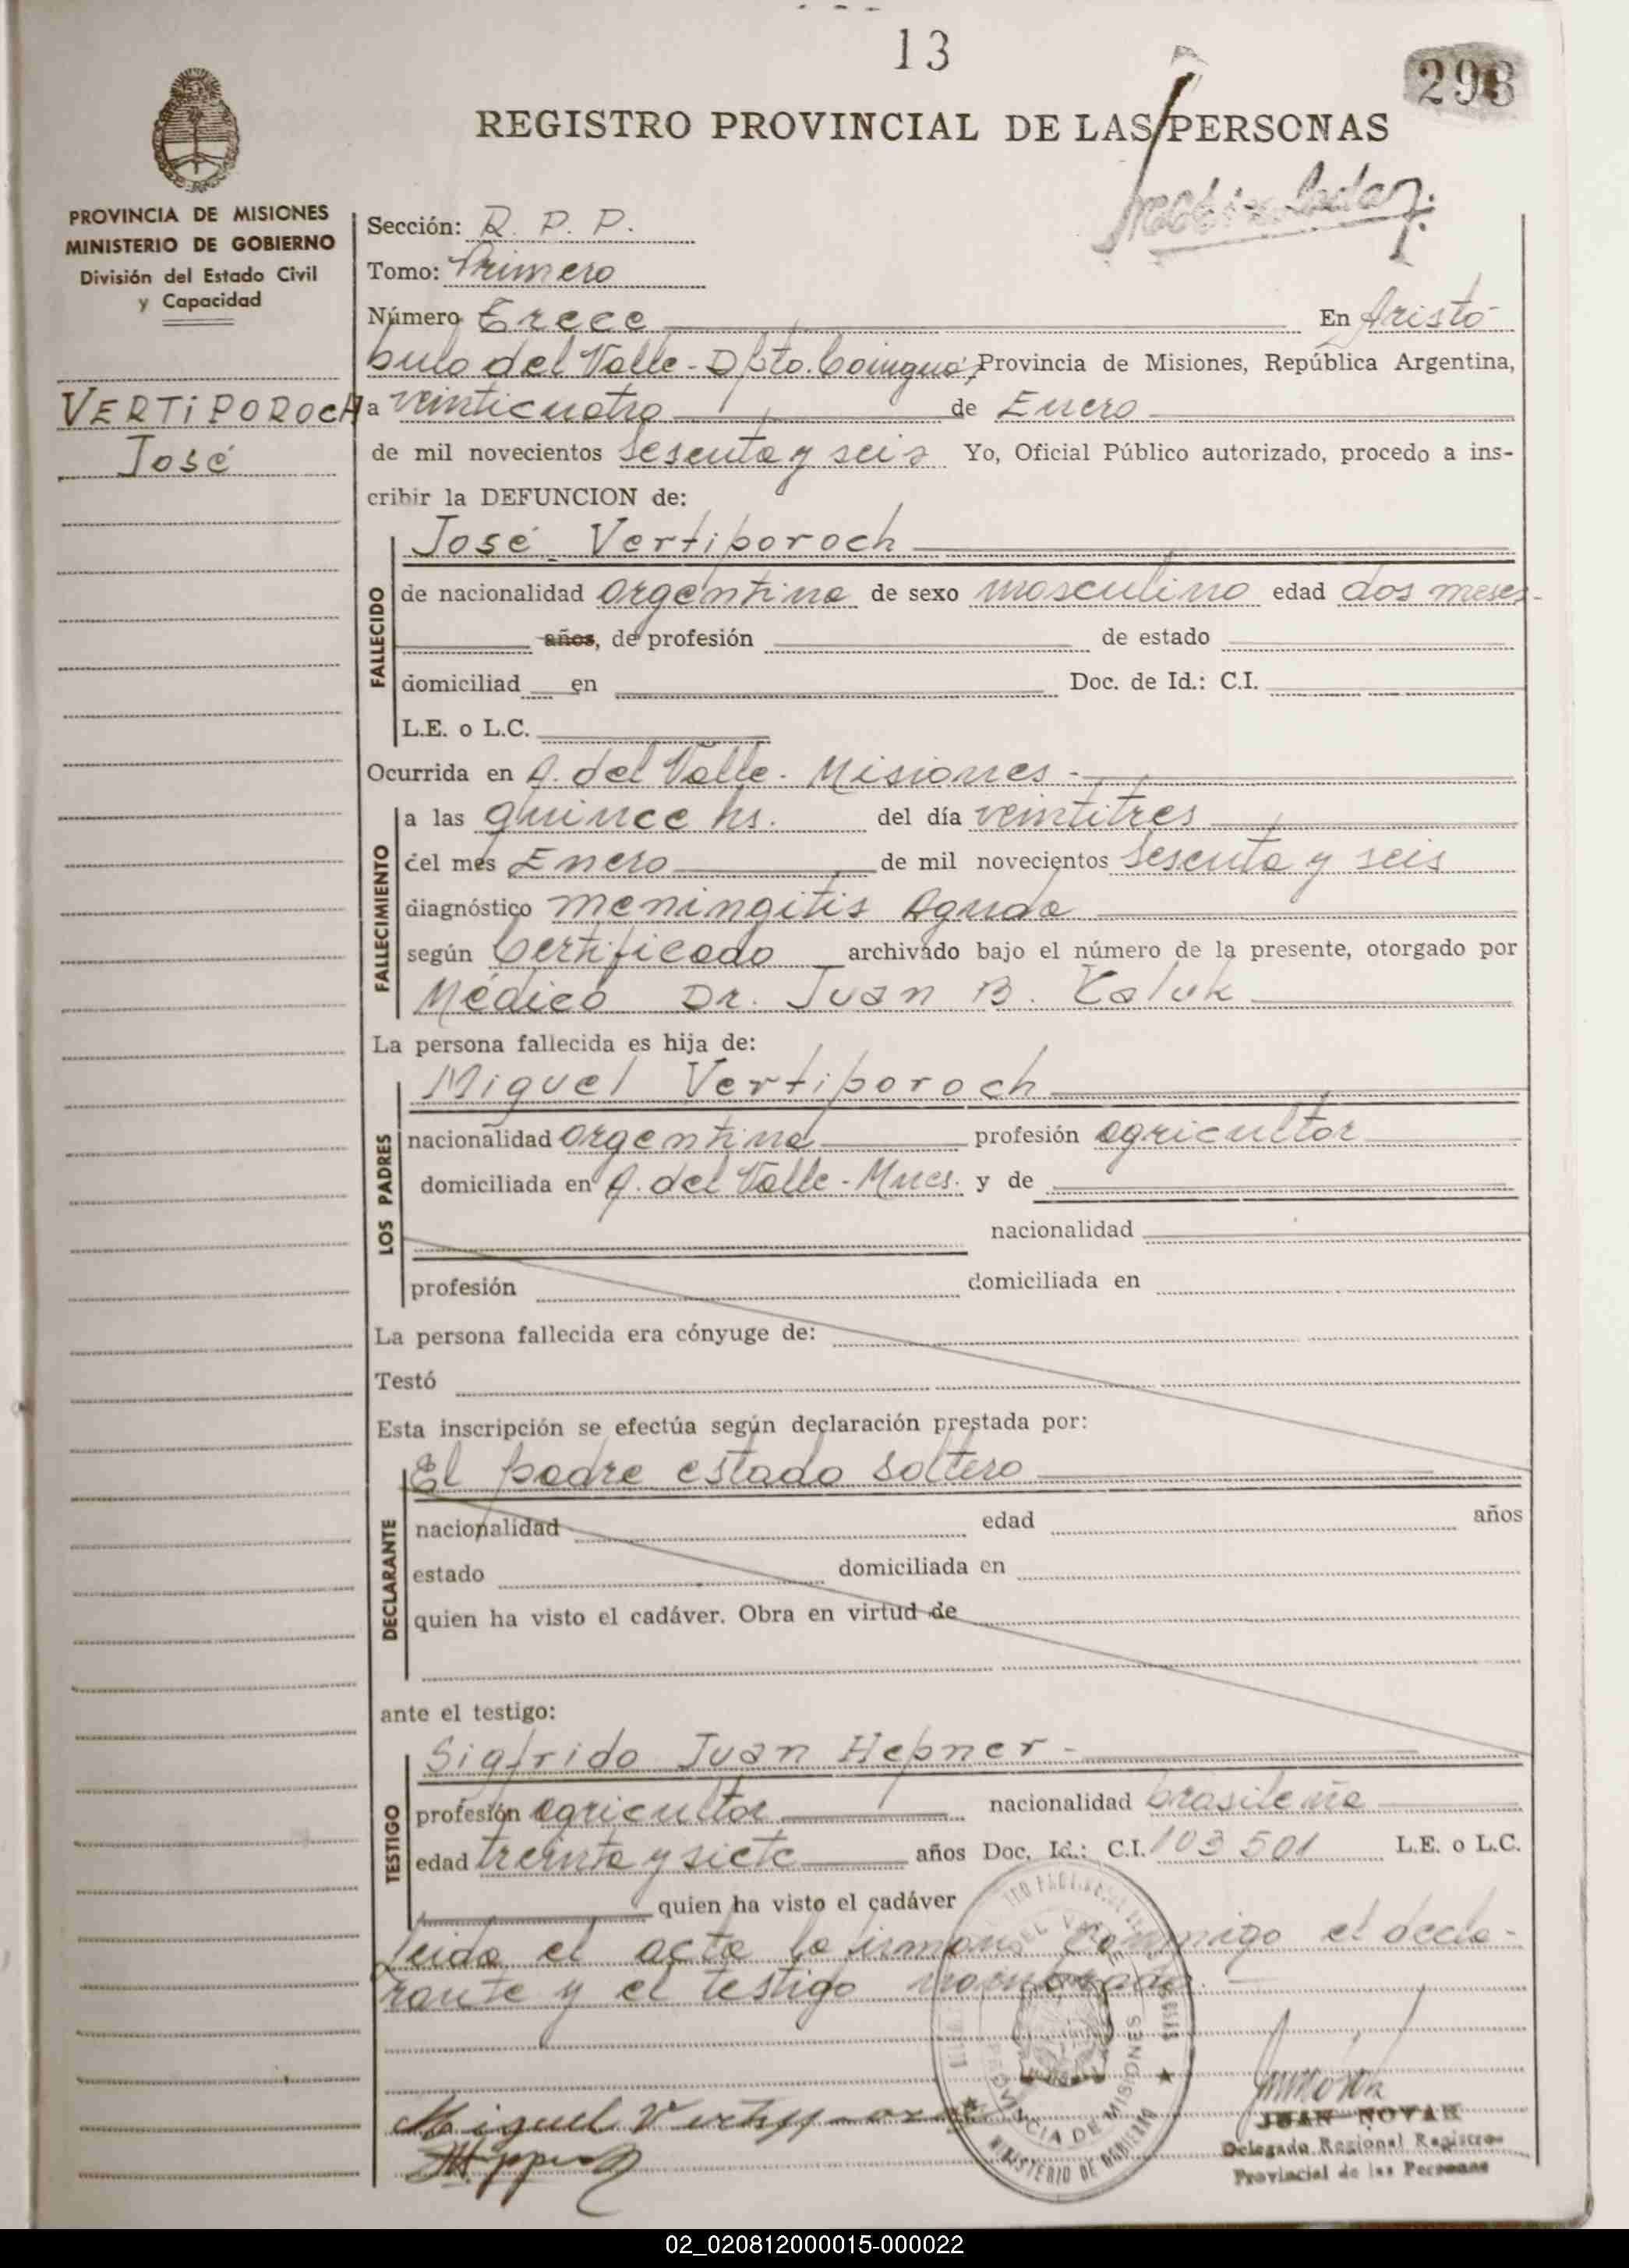 13
298
REGISTRO PROVINCIAL DE LAS PERSONAS
PROVINCIA DE MISIONES
MINISTERIO DE GOBIERNO
División del Estado Civil
y Capacidad
VERTiPOROCH
José
Sección: R. P. P.
Tomo: Primero
Número Trece En Aristó-
bulo del Valle - Dpto. Cainguá, Provincia de Misiones, República Argentina,
a veinticuatro de Enero
de mil novecientos sesenta y seis Yo, Oficial Público autorizado, procedo a ins-
cribir la DEFUNCION de:
FALLECIDO
José Vertiporoch
de nacionalidad argentina de sexo masculino edad dos meses
años, de profesión de estado
domiciliad en Doc. de Id.: C.I.
L.E. o L.C.
Ocurrida en A. del Valle - Misiones -
FALLECIMIENTO
a las quince hs. del día veintitres
del mes Enero de mil novecientos sesenta y seis
diagnóstico meningitis Aguda
según Certificado archivado bajo el número de la presente, otorgado por
Médico Dr. Juan B.
La persona fallecida es hija de:
LOS PADRES
Miguel Vertiporoch
nacionalidad argentina profesión agricultor
domiciliada en A. del Valle - Mnes. y de
nacionalidad
profesión domiciliada en
La persona fallecida era cónyuge de:
Testó
Esta inscripción se efectúa según declaración prestada por:
DECLARANTE
El padre estado soltero
nacionalidad edad años
estado domiciliada en
quien ha visto el cadáver. Obra en virtud de
ante el testigo:
TESTIGO
Sigfrido Juan Hepner -
profesión agricultor nacionalidad brasileña
edad treinta y siete años Doc. Id.: C.I. 103501 L.E. o L.C.
quien ha visto el cadáver
Leida el acta la firman conmigo el decla-
rante y el testigo nombrado.
PROVINCIA DE MISIONES
MINISTERIO DE GOBIERNO
Miguel
JUAN NOVAK
Delegado Regional Registro
Provincial de las Personas
02_020812000015-000022